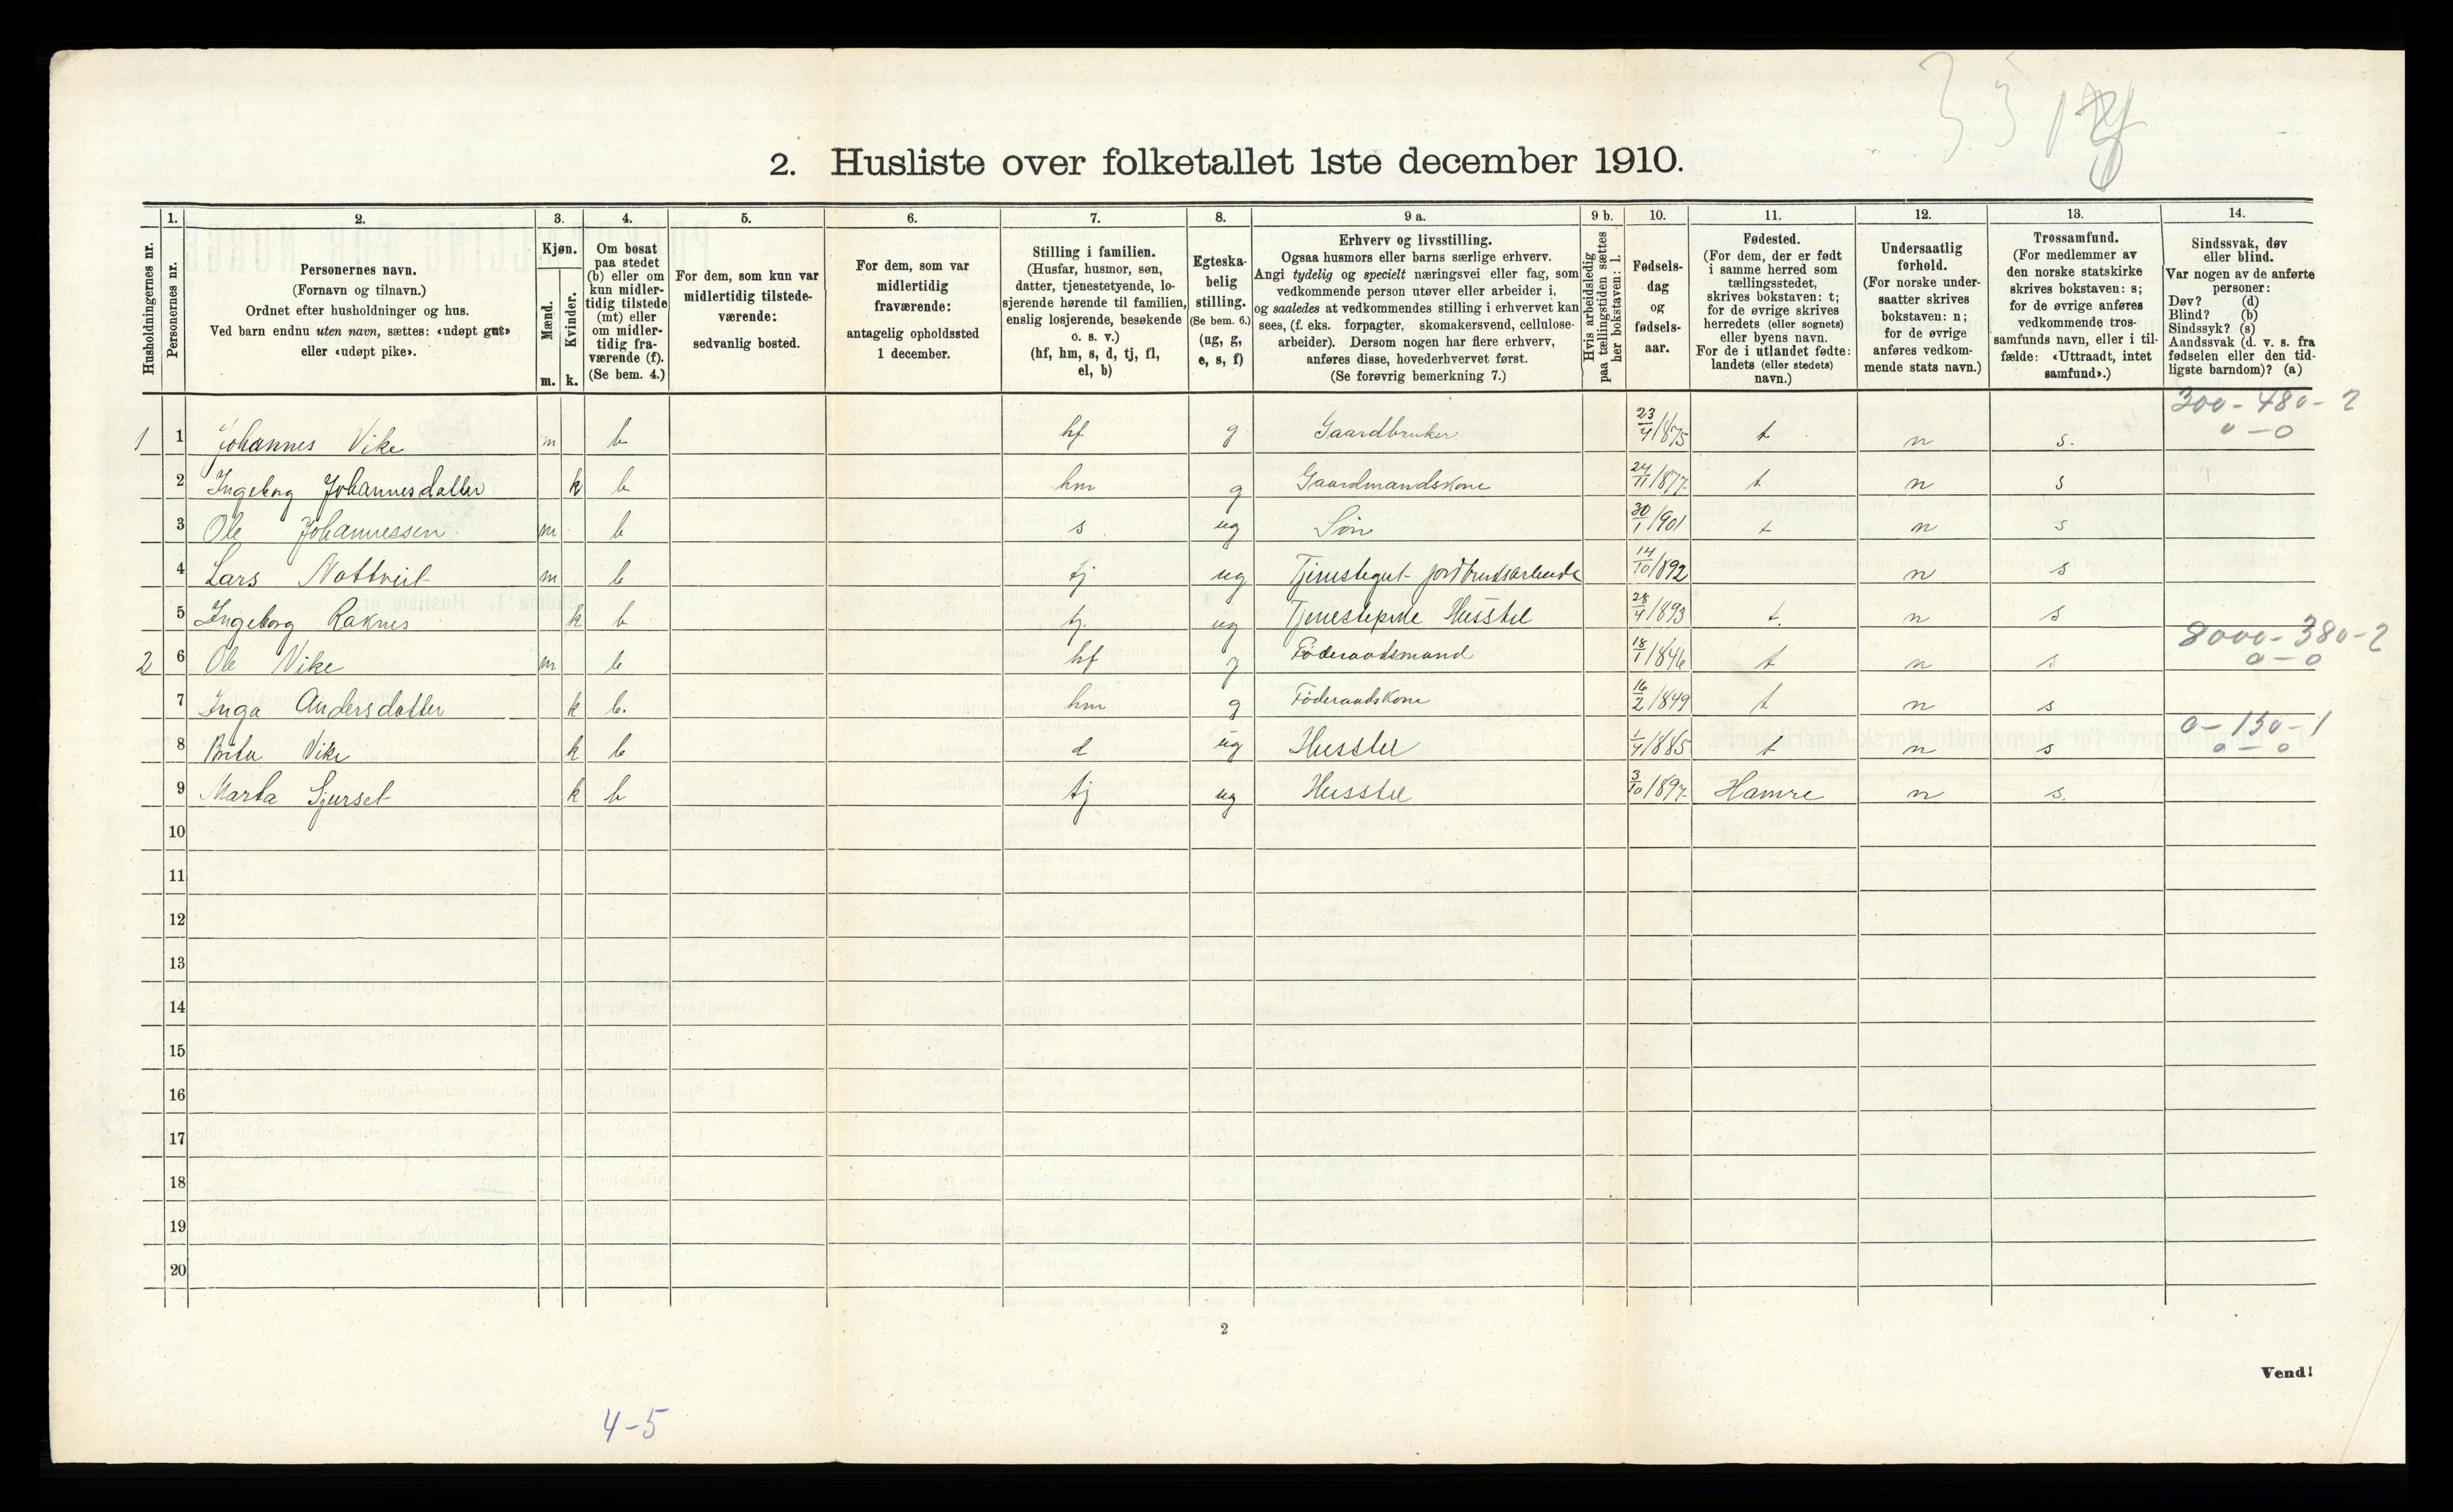 33
2. Husliste over folketallet 1ste december 1910.
Husholdningernes nr.
1.
Personernes nr.
2.
Personernes navn.
(Fornavn og tilnavn.)
Ordnet efter husholdninger og hus.
Ved barn endnu uten navn, sættes: «udøpt gut»
eller «udøpt pike».
3.
Kjøn.
Mænd.
m.
Kvinder.
k.
4.
Om bosat
paa stedet
(b) eller om
kun midler-
tidig tilstede
(mt) eller
om midler-
tidig fra-
værende (f).
(Se bem. 4.)
5.
For dem, som kun var
midlertidig tilstede-
værende:
sedvanlig bosted.
6.
For dem, som var
midlertidig
fraværende:
antagelig opholdssted
1 december.
7.
Stilling i familien.
(Husfar, husmor, søn,
datter, tjenestetyende, lo-
sjerende hørende til familien,
enslig losjerende, besøkende
o. s. v.)
(hf, hm, s, d, tj, fl,
el, b)
8.
Egteska-
belig
stilling.
(Se bem. 6.)
(ug, g,
e, s, f)
9 a.
Erhverv og livsstilling.
Ogsaa husmors eller barns særlige erhverv.
Angi tydelig og specielt næringsvei eller fag, som
vedkommende person utøver eller arbeider i,
og saaledes at vedkommendes stilling i erhvervet kan
sees, (f. eks. forpagter, skomakersvend, cellulose-
arbeider). Dersom nogen har flere erhverv,
anføres disse, hovederhvervet først.
(Se forøvrig bemerkning 7.)
9 b.
Hvis arbeidsledig
paa tællingstiden sættes
her bokstaven: l.
10.
Fødsels-
dag
og
fødsels-
aar.
11.
Fødested.
(For dem, der er født
i samme herred som
tællingsstedet,
skrives bokstaven: t;
for de øvrige skrives
herredets (eller sognets)
eller byens navn.
For de i utlandet fødte:
landets (eller stedets)
navn.)
12.
Undersaatlig
forhold.
(For norske under-
saatter skrives
bokstaven: n;
for de øvrige
anføres vedkom-
mende stats navn.)
13.
Trossamfund.
(For medlemmer av
den norske statskirke
skrives bokstaven: s;
for de øvrige anføres
vedkommende tros-
samfunds navn, eller i til-
fælde: «Uttraadt, intet
samfund».)
14.
Sindssvak, døv
eller blind.
Var nogen av de anførte
personer:
Døv? (d)
Blind? (b)
Sindssyk? (s)
Aandssvak (d. v. s. fra
fødselen eller den tid-
ligste barndom)? (a)
300-480-2
0-0
1 1 Johannes Vike m b hf g Gaardbruker 23/4/875 t n s.
2 Ingeborg Johannesdatter k b hm g Gaardmandskone 24/11/877 t n s
3 Ole Johannessen m b s ug Søn 30/1/901 t n s
4 Lars Nottveit m b tj ug Tjenestegut jordbruksarbeide 14/10/892 n s
5 Ingeborg Raknes k b tj. ug Tjenestepike Husstel 28/4/893 t. n s
8000-380-2
0-0
2 6 Ole Vike m b hf g Føderaadsmand 18/1/846 t n s
7 Inga Andersdatter k b. hm g Føderaadskone 16/2/849 t n s
0-150-1
0-0
8 Brita Vike k b d ug Husstel 1/4/885 t n s
9 Marta Sjurset k b tj ug Husstel 3/10/897 Hamre n s.
10
11
12
13
14
15
16
17
18
19
20
2
Vend!
4-5